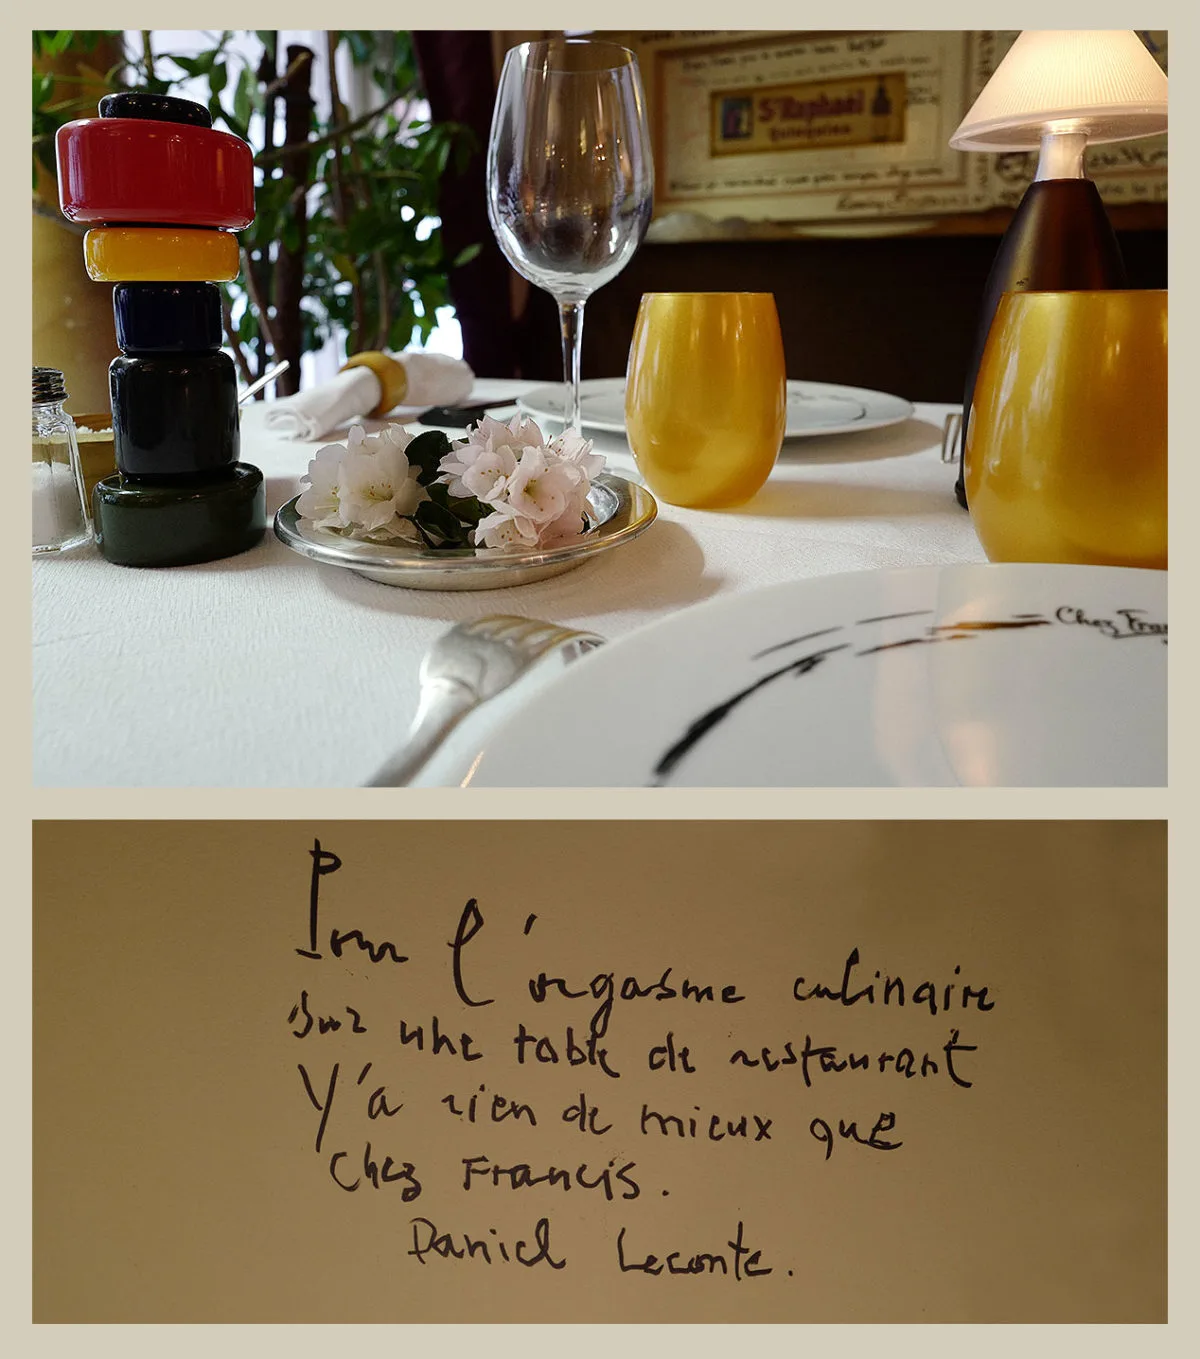 St Raphaël
Quinquina
Chez Fran
Pour l'orgasme culinaire
sur une table de restaurant
Y'a rien de mieux que
Chez Francis.
Daniel Leconte.